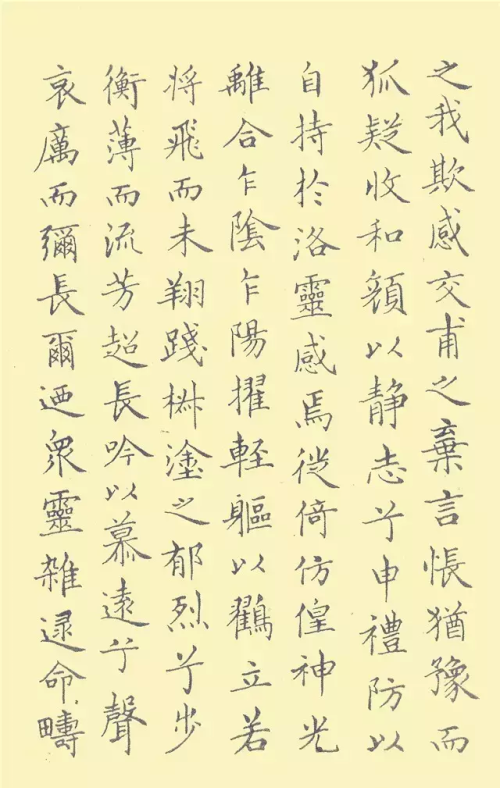 之我欺感交甫之棄言悵猶豫而
狐疑收和顔以静志兮申禮防以
自持於洛靈感焉徙倚仿偟神光
離合乍陰乍陽擢輕軀以鶴立若
将飛而未翔踐椒塗之郁烈兮步
衡薄而流芳超長吟以慕遠兮聲
哀厲而彌長爾迺衆靈雜遝命疇